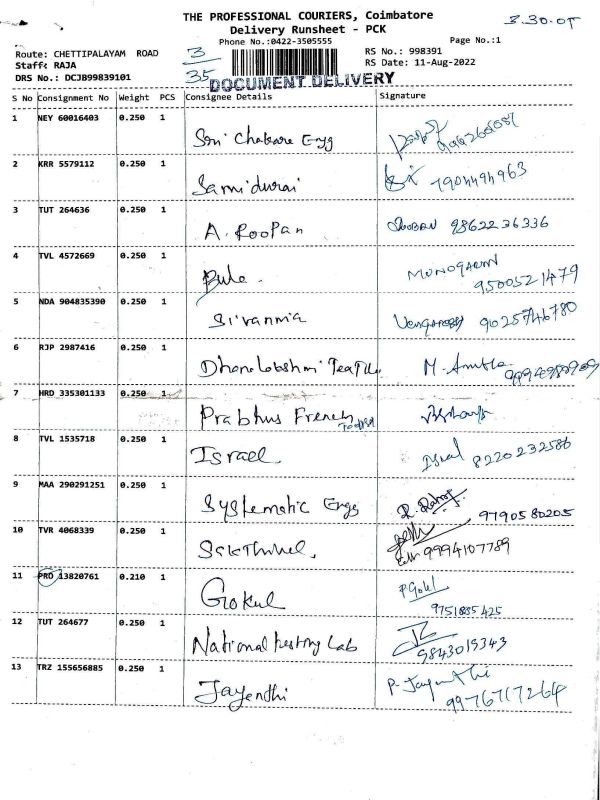 THE PROFESSIONAL COURIERS, Coimbatore
Delivery Runsheet - PCK
3.30.05
Phone No.:0422-3505555
Page No.:1
Route: CHETTIPALAYAM ROAD
3
RS No.: 998391
Staff: RAJA
35
RS Date: 11-Aug-2022
DRS No.: DCJB99839101
DOCUMENT DELIVERY
S No Consignment No Weight PCS Consignee Details Signature
1 NEY 60016403 0.250 1
Sri Chakara Engg
2 KRR 5579112 0.250 1
Samidurai 7904494963
3 TUT 264636 0.250 1
A. Roopan 9862236336
4 TVL 4572669 0.250 1
Bula. 9500521479
5 NDA 904835390 0.250 1
Sivanmia 9025746780
6 RJP 2987416 0.250 1
Dhanalakshmi M. Amutha
7 HRD 335301133 0.250 1
Prabhus French
8 TVL 1535718 0.250 1
Israel Israel 8220232586
9 MAA 290291251 0.250 1
Systematic Engg 9790580205
10 TVR 4068339 0.250 1
Sakthivel. 9994107789
11 PRO 13820761 0.210 1
Gokul P. Gokul
9751885425
12 TUT 264677 0.250 1
National testing Lab 9843015343
13 TRZ 155656885 0.250 1
Jayenthi P. Jayanthi
9976717264